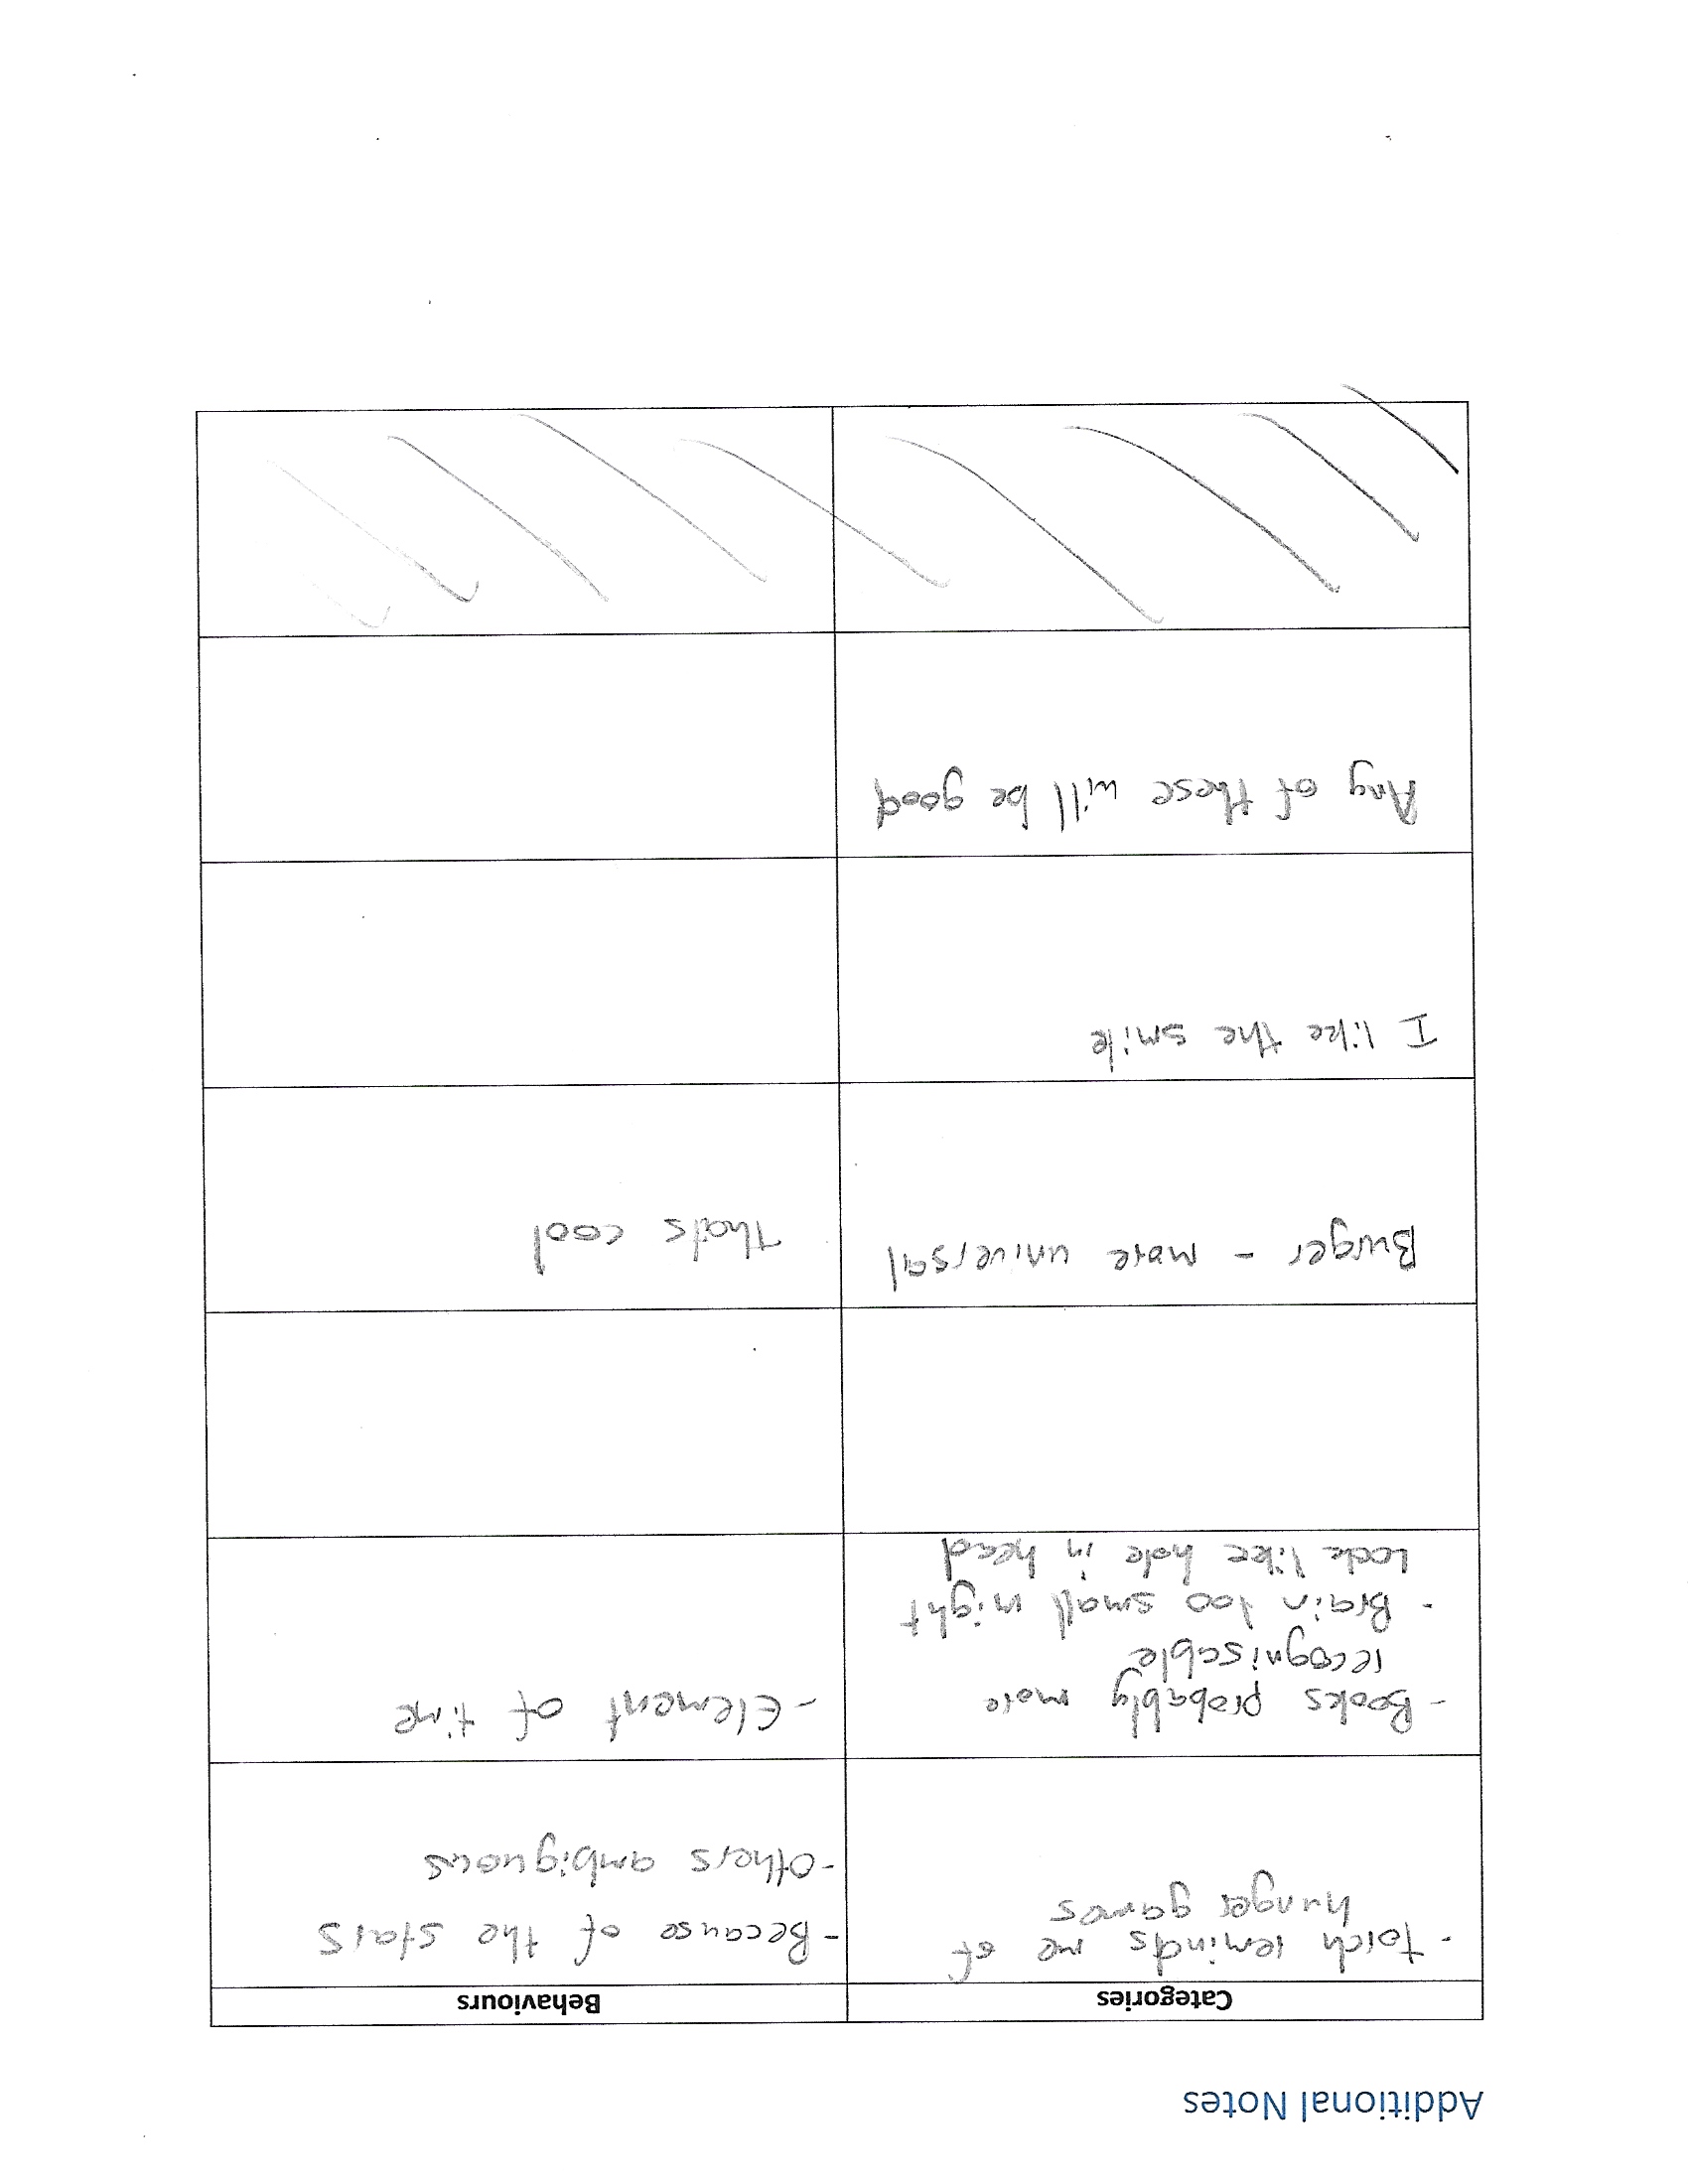 Additional Notes
Categories
Behaviours
- torch reminds me of
hunger games
- Because of the stars
- Others ambiguous
- Books probably more
recognisable
- Brain too small might
look like hole in head
- Element of time
Burger - more universal
thats cool
I like the smile
Any of these will be good